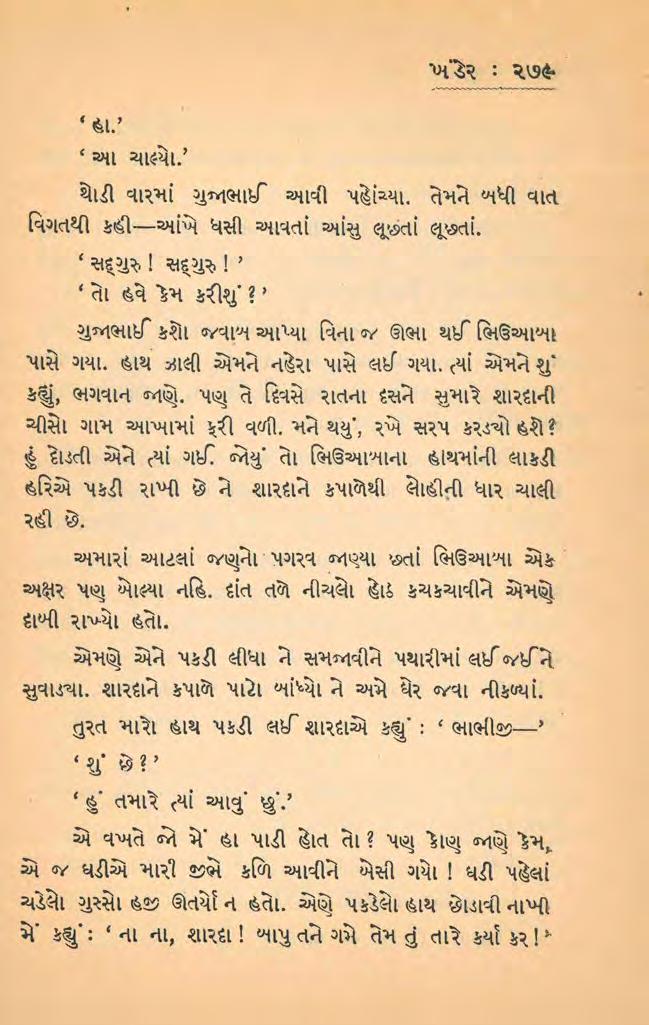 ખંડેર : ૨૭૯
‘ હા.’
‘ આ ચાલ્યો.’
થોડી વારમાં ગુજાભાઈ આવી પહોંચ્યા. તેમને બધી વાત
વિગતથી કહી—આંખે ધસી આવતાં આંસુ લૂછતાં લૂછતાં.
‘ સદ્‌ગુરુ ! સદ્‌ગુરુ ! ’
‘ તો હવે કેમ કરીશું ? ’
ગુજાભાઈ કશો જવાબ આપ્યા વિના જ ઊભા થઈ ભિઉઆબા
પાસે ગયા. હાથ ઝાલી એમને નહેરા પાસે લઈ ગયા. ત્યાં એમને શું
કહ્યું, ભગવાન જાણે. પણ તે દિવસે રાતના દસને સુમારે શારદાની
ચીસો ગામ આખામાં ફરી વળી. મને થયું, રખે સરપ કરડ્યો હશે ?
હું દોડતી એને ત્યાં ગઈ. જોયું તો ભિઉઆબાના હાથમાંની લાકડી
હરિએ પકડી રાખી છે ને શારદાને કપાળેથી લોહીની ધાર ચાલી
રહી છે.
અમારાં આટલાં જણનો પગરવ જાણ્યા છતાં ભિઉઆબા એક
અક્ષર પણ બોલ્યા નહિ. દાંત તળે નીચલો હોઠ કચકચાવીને એમણે
દાબી રાખ્યો હતો.
એમણે એને પકડી લીધા ને સમજાવીને પથારીમાં લઈ જઈને
સુવાડ્યા. શારદાને કપાળે પાટો બાંધ્યો ને અમે ઘેર જવા નીકળ્યાં.
તુરત મારો હાથ પકડી લઈ શારદાએ કહ્યું : ‘ ભાભીજી—’
‘ શું છે ? ’
‘ હું તમારે ત્યાં આવું છું.’
એ વખતે જો મેં હા પાડી હોત તો ? પણ કોણ જાણે કેમ,
એ જ ઘડીએ મારી જીભે કળિ આવીને બેસી ગયો ! ઘડી પહેલાં
ચડેલો ગુસ્સો હજી ઊતર્યો ન હતો. એણે પકડેલો હાથ છોડાવી નાખી
મેં કહ્યું : ‘ ના ના, શારદા ! બાપુ તને ગમે તેમ તું તારે કર્યાં કર ! ’